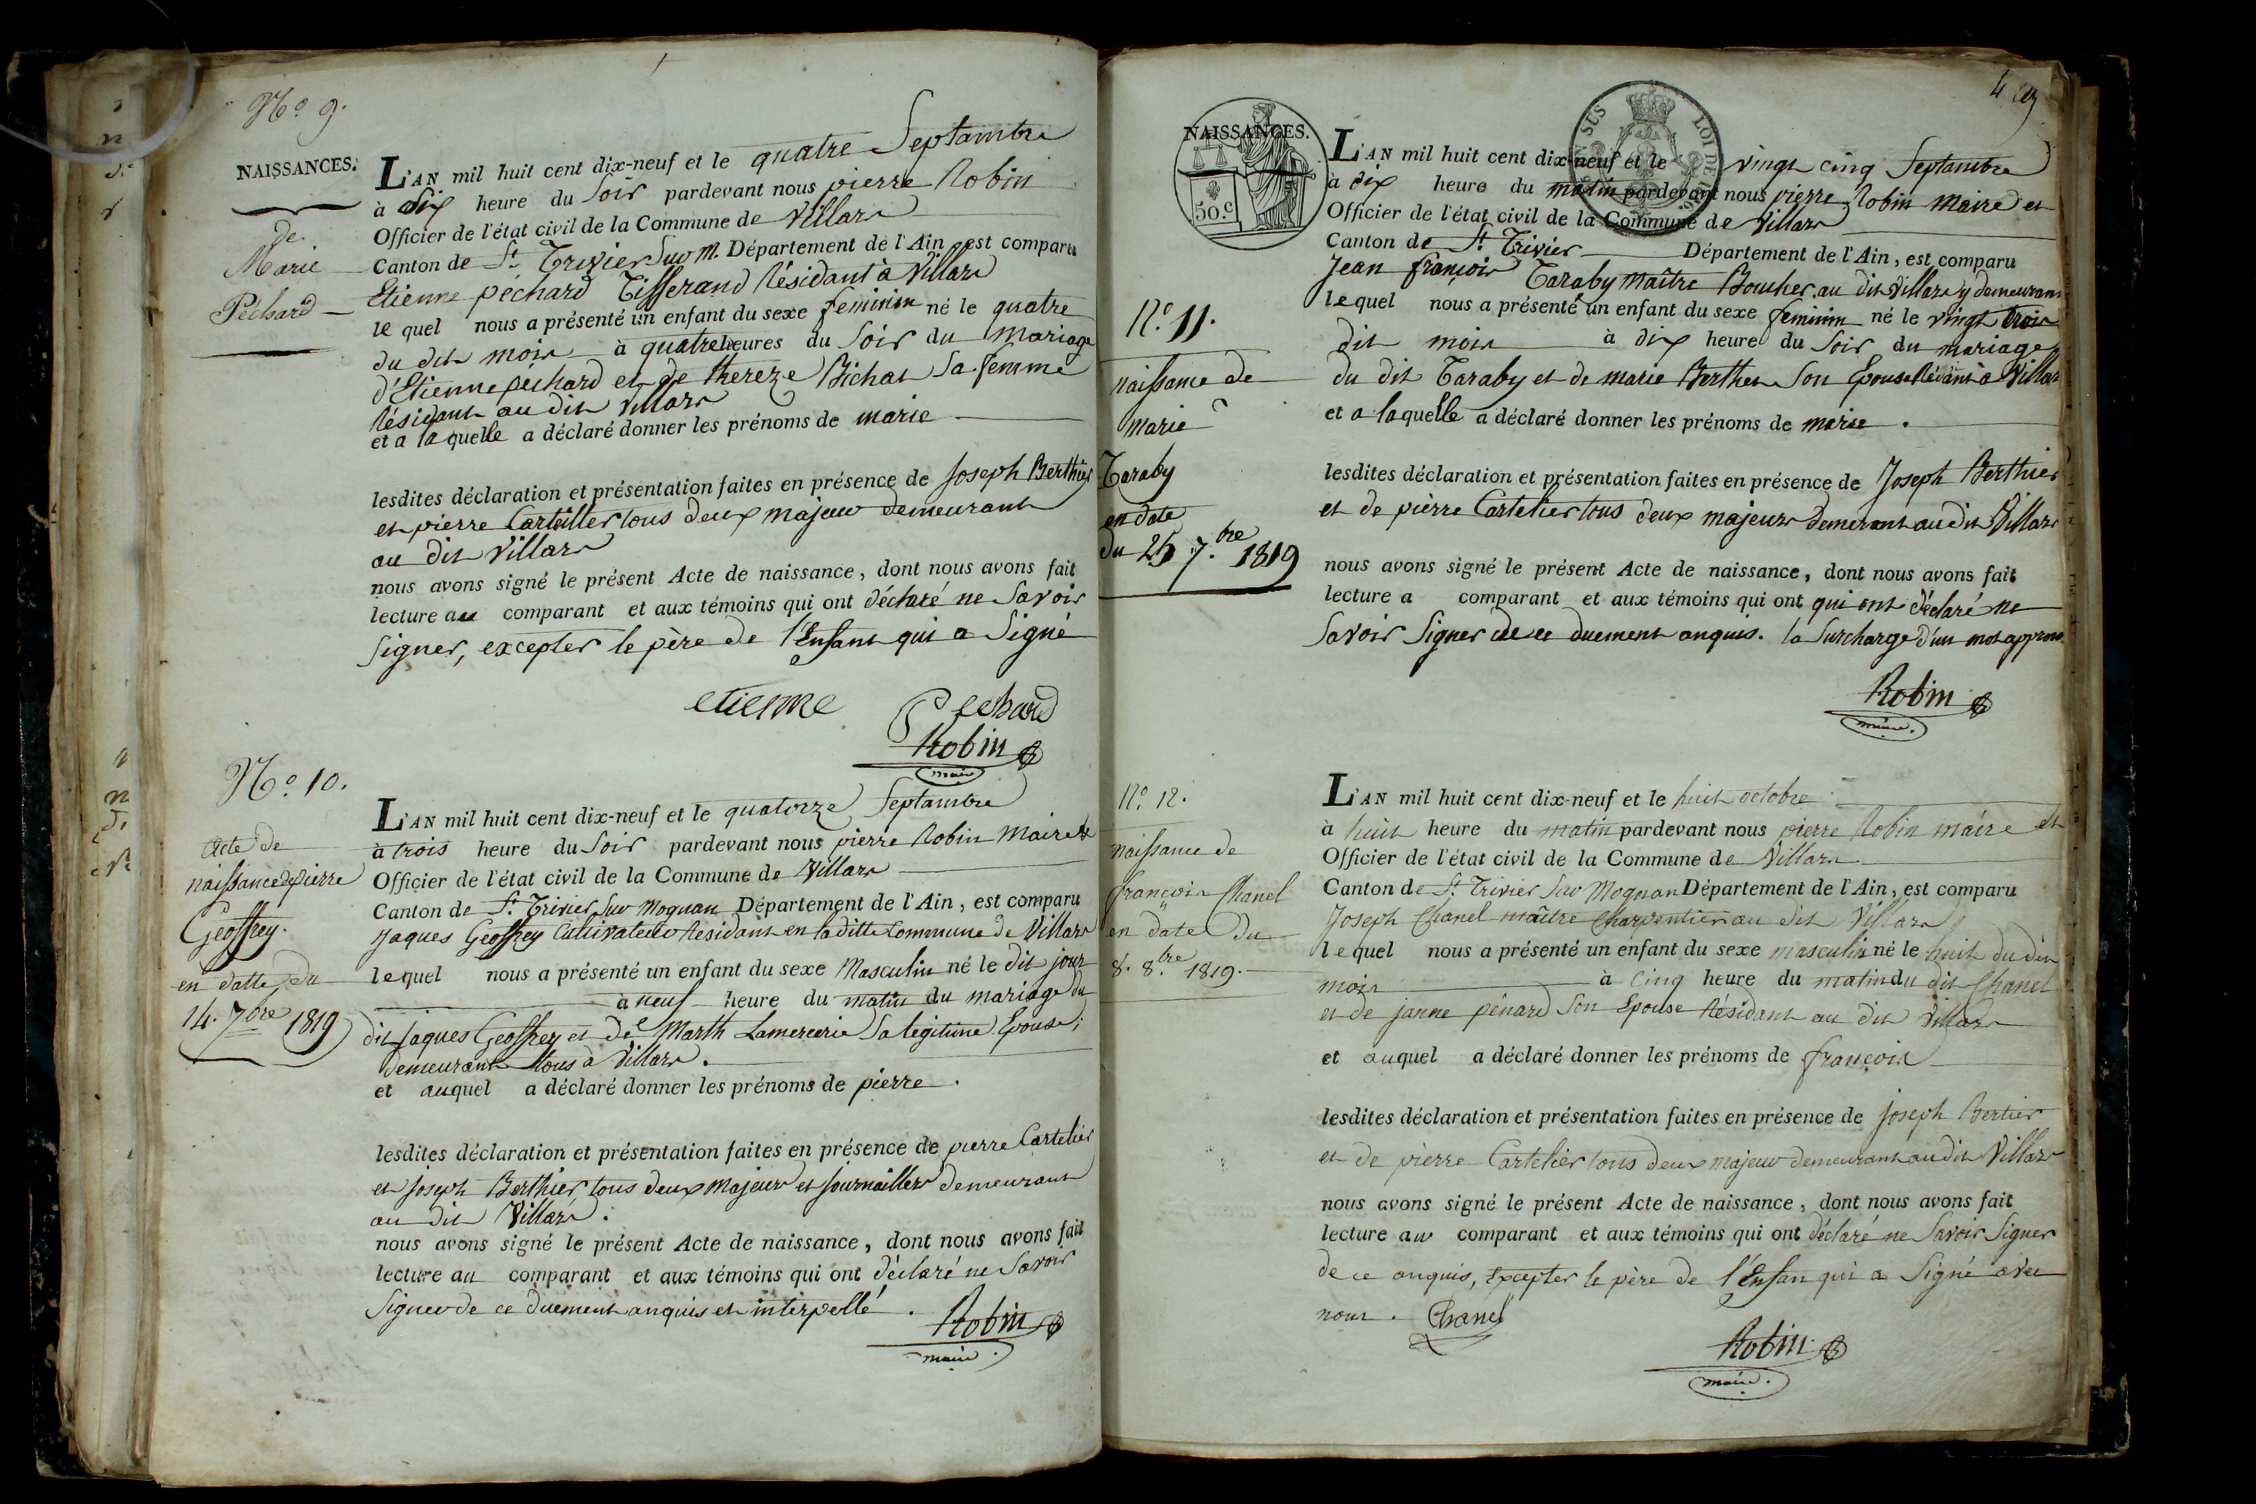 N.o 9.
NAISSANCES.
de
Marie
Péchard
L'AN mil huit cent dix-neuf et le quatre Septambre
à Six heure du Soir pardevant nous pierre Robin
Officier de l'état civil de la Commune de Villars
Canton de St. Trivier Sur M. Département de l'Ain, est comparu
Etienne péchard Tisserand Résidant à Villars
le quel nous a présenté un enfant du sexe feminin né le quatre
du dit mois à quatre heures du Soir du mariage
d'Etienne péchard et de thereze Bichat Sa femme
Résidant au dit Villars
et a la quelle a déclaré donner les prénoms de marie
lesdites déclaration et présentation faites en présence de Joseph Berthier
et pierre Carteiller tous deux majeur demeurant
au dit Villars
nous avons signé le présent Acte de naissance, dont nous avons fait
lecture au comparant et aux témoins qui ont déclaré ne Savoir
Signer, excepter le père de l'Enfant qui a Signé
etienne Pechard
Robin
maire
N.o 10.
Acte de
naissance de pierre
Geoffrey.
en datte du
14. 7bre 1819
L'AN mil huit cent dix-neuf et le quatorze Septambre
à trois heure du Soir pardevant nous pierre Robin Maire et
Officier de l'état civil de la Commune de Villars
Canton de St. Trivier Sur Mognan Département de l'Ain, est comparu
Jaques Geoffrey Cultivateur Résidant en la ditte Commune de Villars
lequel nous a présenté un enfant du sexe Masculin né le dit jour
à neuf heure du matin du mariage du
dit Jaques Geoffrey et de Marth Lamercerie Sa legitime Epouse;
demeurant tous à Villars.
et auquel a déclaré donner les prénoms de pierre.
lesdites déclaration et présentation faites en présence de pierre Cartelier
et Joseph Berthier, tous deux Majeurs et journaillers demeurant
au dit Villars.
nous avons signé le présent Acte de naissance, dont nous avons fait
lecture au comparant et aux témoins qui ont déclaré ne Savoir
Signer de ce duement anquis et interpellé.
Robin
maire.
NAISSANCES.
50.c
N.o 11.
naissance de
marie
Taraby
en date
du 25 7.bre 1819
L'AN mil huit cent dix-neuf et le vingt cinq Septambre
à dix heure du matin pardevant nous pierre Robin Maire et
Officier de l'état civil de la Commune de Villars
Canton de St. Trivier Département de l'Ain, est comparu
Jean françois Taraby Maître Boucher au dit Villars y demeurant
lequel nous a présenté un enfant du sexe feminin né le vingt trois
dit mois à dix heure du Soir du mariage
du dit Taraby et de marie Berthet Son Epouse Résidant à Villars
et a laquelle a déclaré donner les prénoms de marie.
lesdites déclaration et présentation faites en présence de Joseph Berthier
et de pièrre Cartelier tous deux majeurs demerant au dit Villars
nous avons signé le présent Acte de naissance, dont nous avons fait
lecture a comparant et aux témoins qui ont qui ont déclaré ne
Savoir Signer de ce duement anquis. la Surcharge d'un mot approu
Robin
maire.
N.o 12.
naissance de
françois Chanel
en date du
8. 8.bre 1819.
L'AN mil huit cent dix-neuf et le huit octobre
à huit heure du matin pardevant nous pierre Robin maire et
Officier de l'état civil de la Commune de Villars
Canton de St. Trivier Sur Mognan Département de l'Ain, est comparu
Joseph Chanel maître Charpentier au dit Villars
lequel nous a présenté un enfant du sexe masculin né le huit du dit
mois à cinq heure du matin du dit Chanel
et de janne pénard Son Epouse Résidant au dit Villars
et auquel a déclaré donner les prénoms de françois
lesdites déclaration et présentation faites en présence de joseph Bertier
et de pièrre Cartelier tous deux majeur demeurant au dit Villars
nous avons signé le présent Acte de naissance, dont nous avons fait
lecture au comparant et aux témoins qui ont déclaré ne Savoir Signer
de ce anquis, Excepter le père de l'Enfan qui a Signé avec
nous. Chanel
Robin
maire.